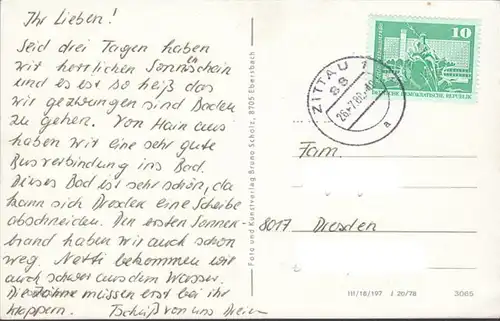 Ihr Lieben!
Seid drei Tagen haben
wir herrlichen Sonnenschein
und es ist so heiß das
wir gezwungen sind Baden
zu gehen. Von Hain aus
haben wir eine sehr gute
Busverbindung ins Bad.
Dieses Bad ist sehr schön, da
kann sich Dresden eine Scheibe
abschneiden. Den ersten Sonnen-
brand haben wir auch schon
weg. Netti bekommen wir
auch schwer aus dem Wasser.
Die Zähne müssen erst bei ihr
klappern. Tschüß von uns Dreien
Foto und Kunstverlag Bruno Scholz, 8705 Ebersbach
10
DEUTSCHE DEMOKRATISCHE REPUBLIK
ZITTAU 1
a
Fam.
8017 Dresden
III/18/197 J 20/78 3065